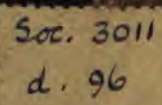 Soc. 3011
d. 96